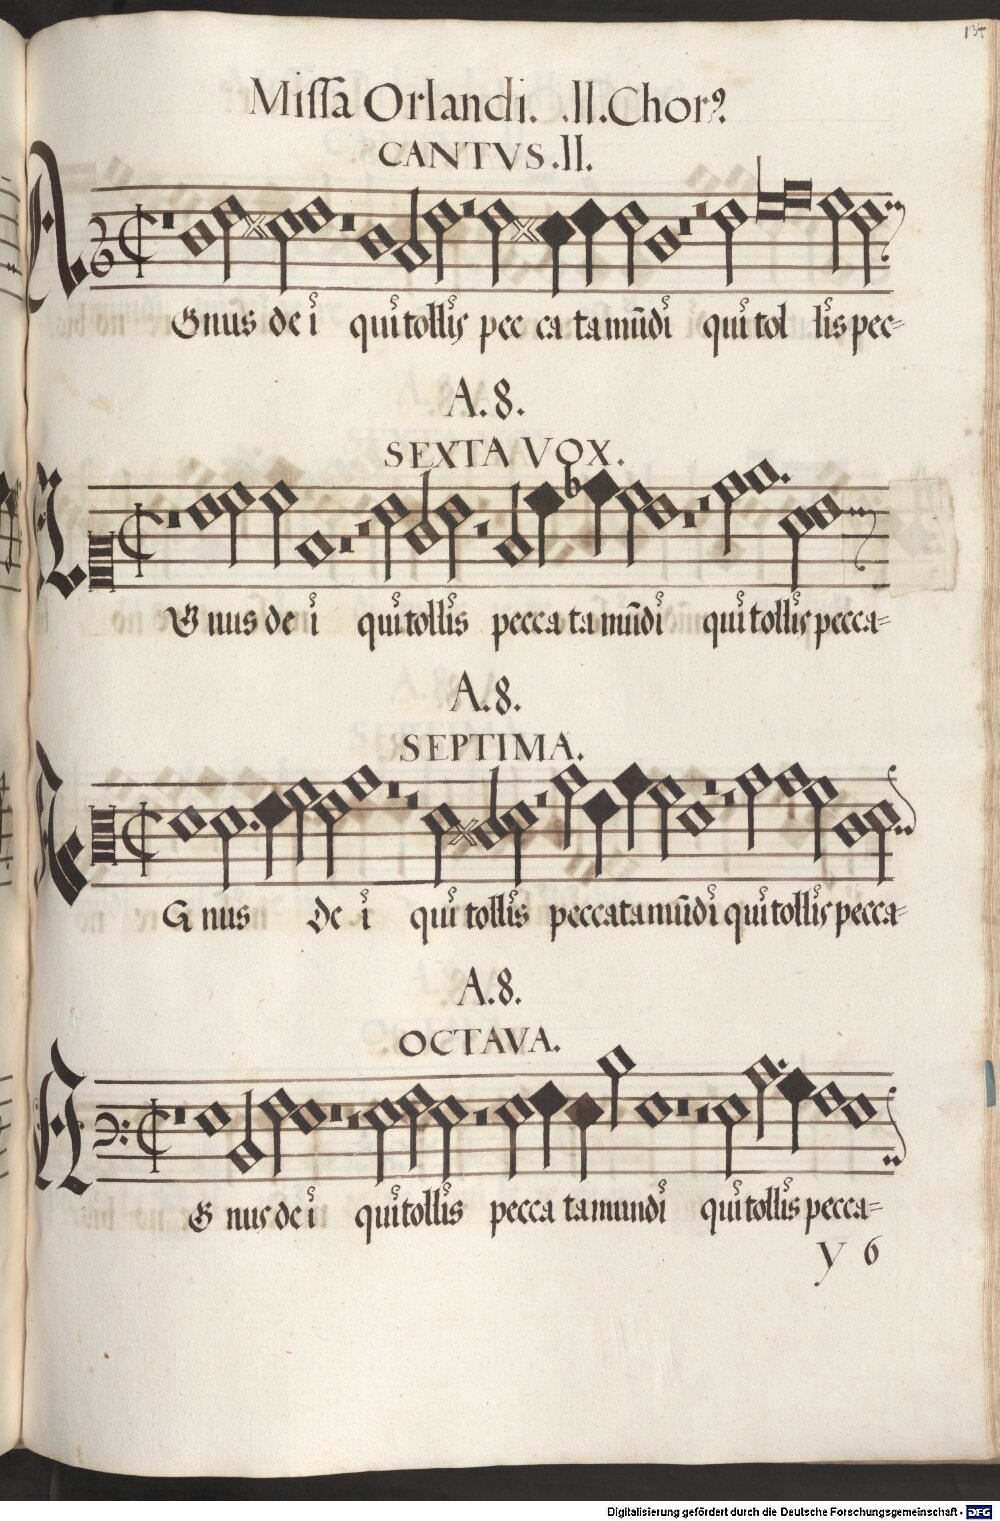 134
Missa Orlandi. .II. Chorꝰ.
CANTVS .II.
AGnus de i qui tollis pec ca ta mūdi qui tol lis pec=
A. 8.
SEXTA VOX.
AGnus de i qui tollis pecca ta mūdi qui tollis pecca=
A. 8.
SEPTIMA.
AGnus de i qui tollis peccata mūdi qui tollis pecca=
A. 8.
OCTAVA.
AGnus de i qui tollis pecca ta mundi qui tollis pecca=
y 6
Digitalisierung gefördert durch die Deutsche Forschungsgemeinschaft - DFG